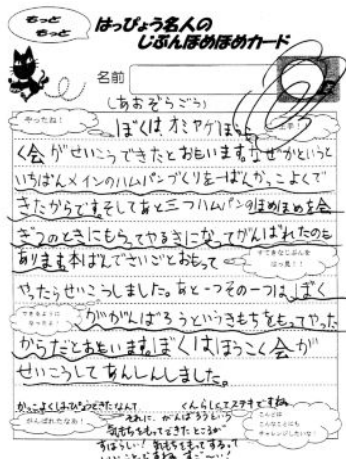 もっと
もっと
はっぴょう名人の
じぶんほめほめカード
名前
(あおぞらごう)
やったね!
ぼくは、オミヤゲほう
く会がせいこうできたとおもいます。なぜかというと
いちばんメインのハムパンづくりを一ばんかっこよくで
きたからです。そしてあと三つハムパンのほめほめを会
ぎつのときにもらってやるきになってがんばれたのも
あります。本ばんでさいごとおもって
すてきなじぶんを
はっ見!!
やったらせいこうしました。あと一つその一つは、ぼく
できるように
なったよ!
ががんばろうというきもちをもってやった
からだとおもいます。ぼくはほうこく会が
せいこうしてあんしんしました。
かっこよくはっぴょうできたなんて
ステキですね
がんばれたなあ!
それに、がんばろうという
気もちをもってできたところが
すばらしい!気もちをもってするって
こんどは
こんなことにも
チャレンジしたいな!